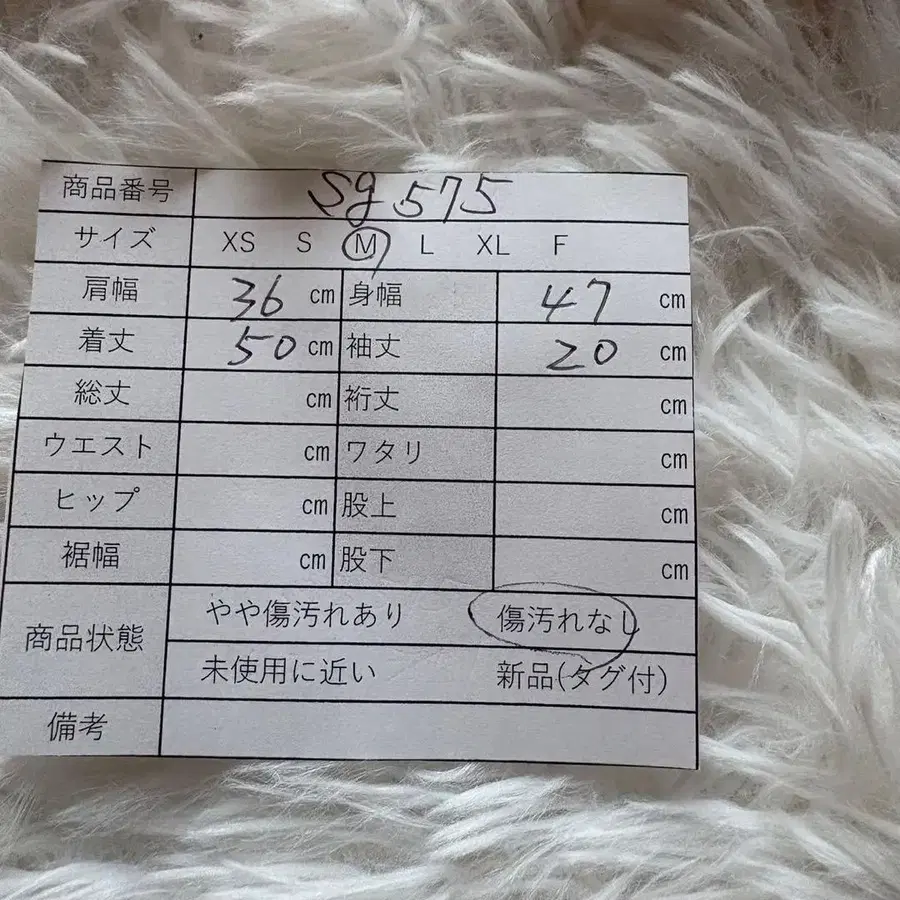 商品番号 Sg575
サイズ XS S M L XL F
肩幅 36 cm 身幅 47 cm
着丈 50 cm 袖丈 20 cm
総丈 cm 裄丈 cm
ウエスト cm ワタリ cm
ヒップ cm 股上 cm
裾幅 cm 股下 cm
商品状態 やや傷汚れあり 傷汚れなし
未使用に近い 新品(タグ付)
備考